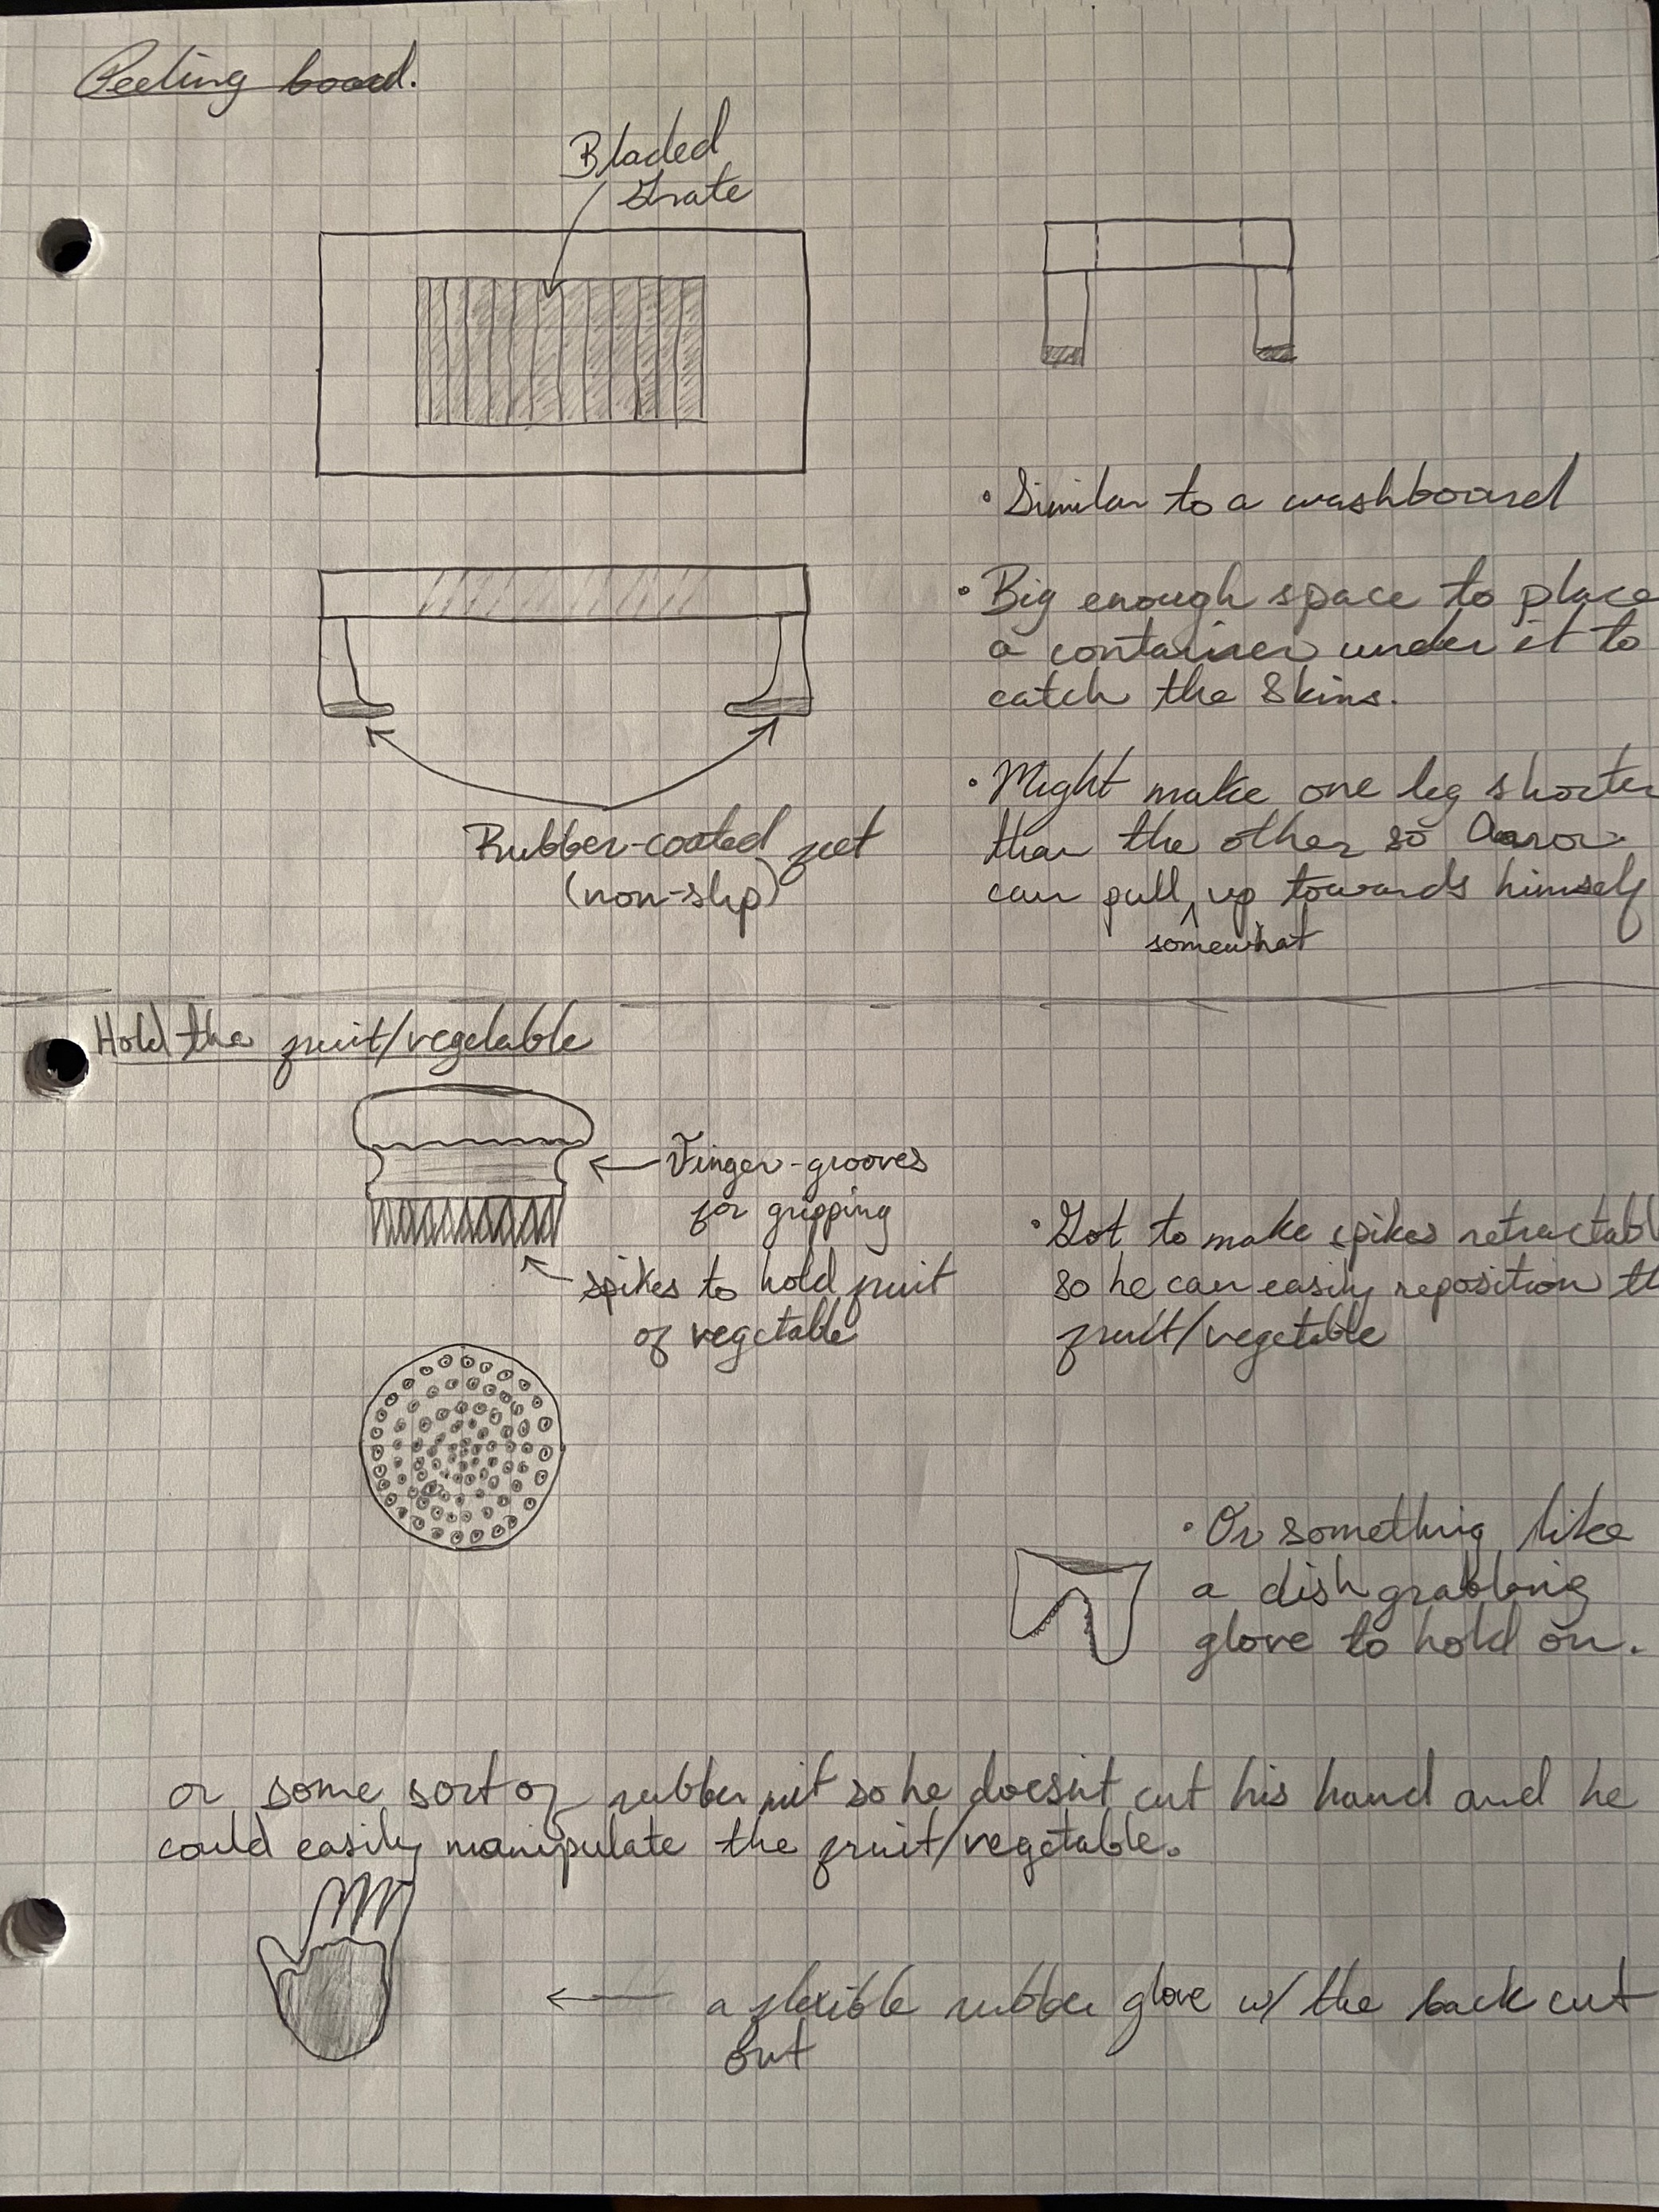 Peeling board.
Bladed
Grate
• Similar to a washboard
• Big enough space to place
a container under it to
catch the skins.
• Might make one leg shorter
than the other so Aaron
can pull ^ up towards himself
somewhat
Rubber-coated feet
(non-slip)
Hold the fruit/vegetable
Finger-grooves
for gripping
spikes to hold fruit
of vegetable
• Got to make spikes retractabl
so he can easily reposition th
fruit/vegetable
• Or something like
a dish grabbing
glove to hold on.
or some sort of rubber mit so he doesn't cut his hand and he
could easily manipulate the fruit/vegetable.
a flexible rubber glove w/ the back cut
out